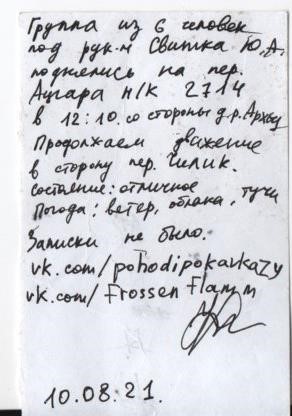 Группа из 6 человек
под рук-м Свитка Ю.А.
поднялись на пер.
Ацгара н/к 2714
в 12:10. со стороны д.р.Архыз
Продолжаем движение
в сторону пер. Чилик.
Состояние: отличное
Погода: ветер, облака, тучи
Записки не было.
vk.com/pohodipokavkazy
vk.com/Frossen Flamm
10.08.21.